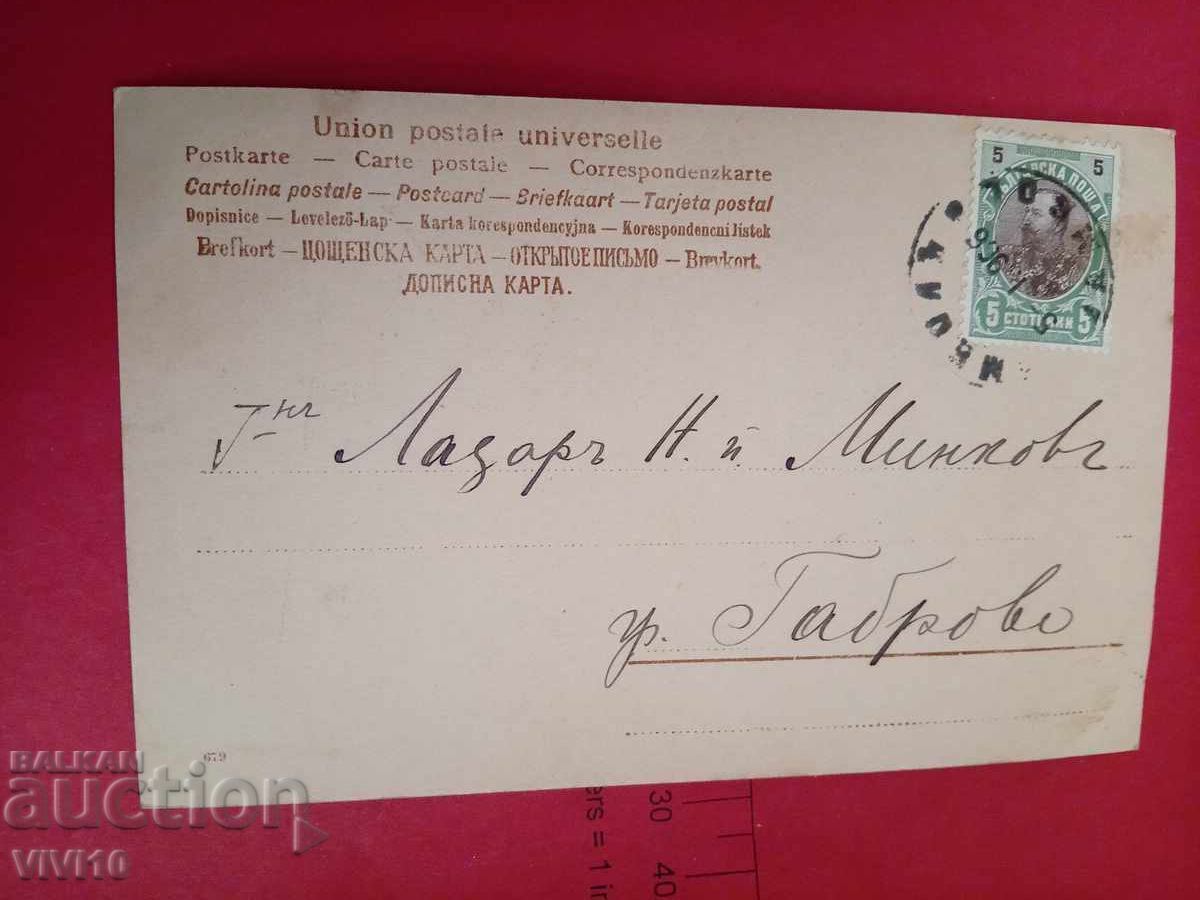 Union postale universelle
Postkarte — Carte postale — Correspondenzkarte
Cartolina postale — Postcard — Briefkaart — Tarjeta postal
Dopisnice — Levelező-Lap — Karta korespondencyjna — Korespondencni listek
Brefkort — ЦОЩЕНСКА КАРТА — ОТКРЫТОЕ ПИСЬМО — Brevkort.
ДОПИСНА КАРТА.
5 5
ПОЩА
5 СТОТИНКИ 5
Г-нъ Лазаръ Н. п. Минковъ
гр. Габрово
679
BALKAN
auction
VIVI10
ers = 1 in
30
40